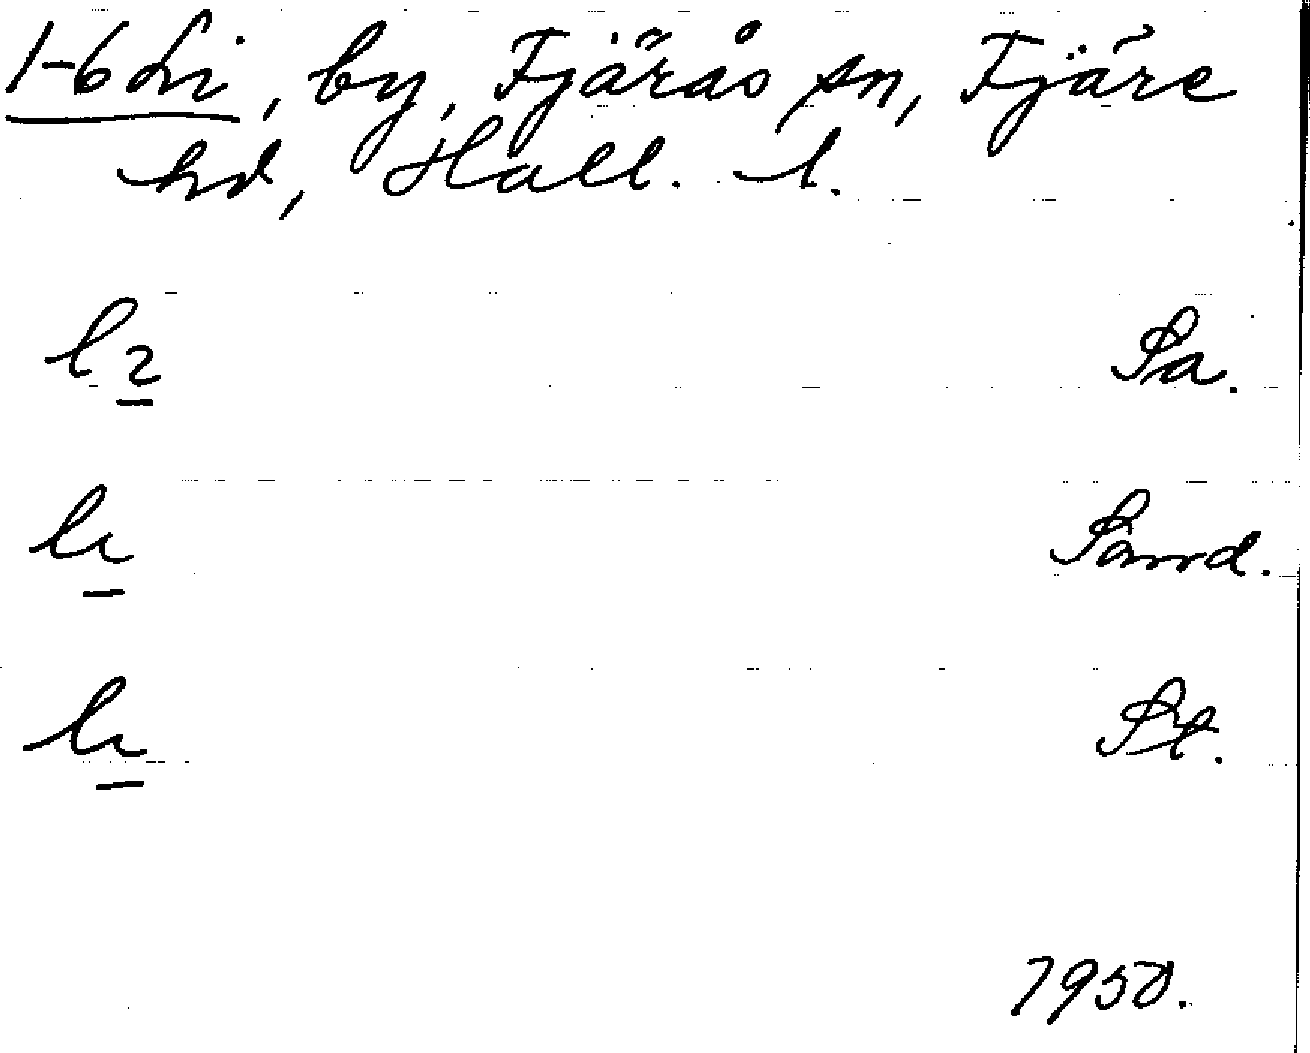 1-6 Li, by, Fjärås sn, Fjäre
hd, Hall. l.
Sa.
Sand.
St.
1950.